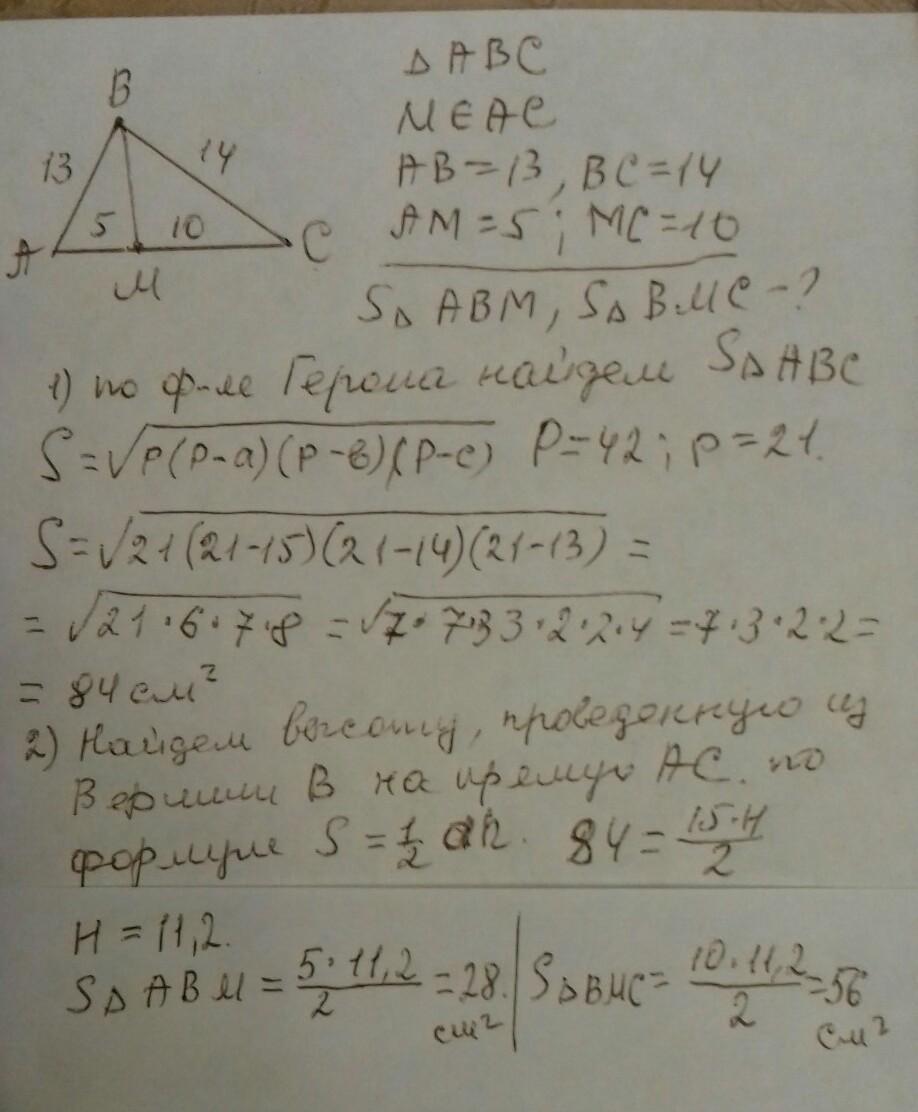 B
13
14
5
10
A
C
M
△ABC
M∈AC
AB=13, BC=14
AM=5; MC=10
S△ABM, S△BMC-?
1) по ф-ле Герона найдем S△ABC
S=√p(p-a)(p-в)(p-c) P=42; p=21.
S=√21(21-15)(21-14)(21-13) =
= √21·6·7·8 = √7·7·3·3·2·2·4 =7·3·2·2=
= 84 см²
2) Найдем высоту, проведенную из
Вершины В на прямую AC. по
формуле S = 1/2 ah. 84 = 15·H/2
H = 11,2.
S△ABM = 5·11,2/2 =28. см² | S△BMC= 10·11,2/2 =56 см²